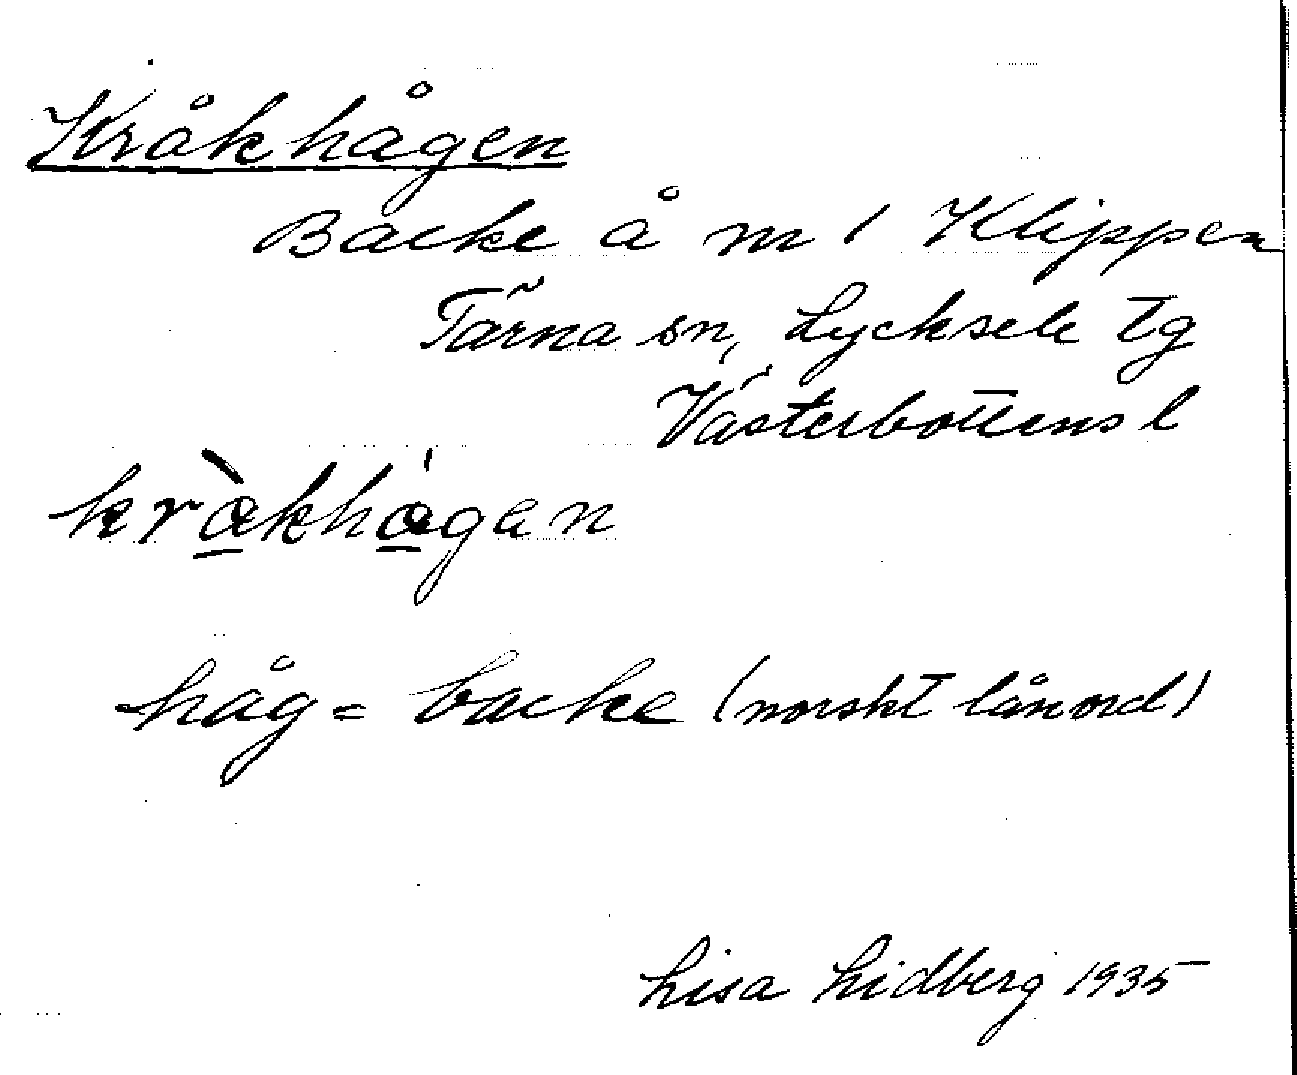 Kråkhågen
Backe å m 1 Klippen
Tärna sn, Lycksele tg
Västerbottens l
kràkhágen
håg = backe (norskt lånord)
Lisa Lidberg 1935